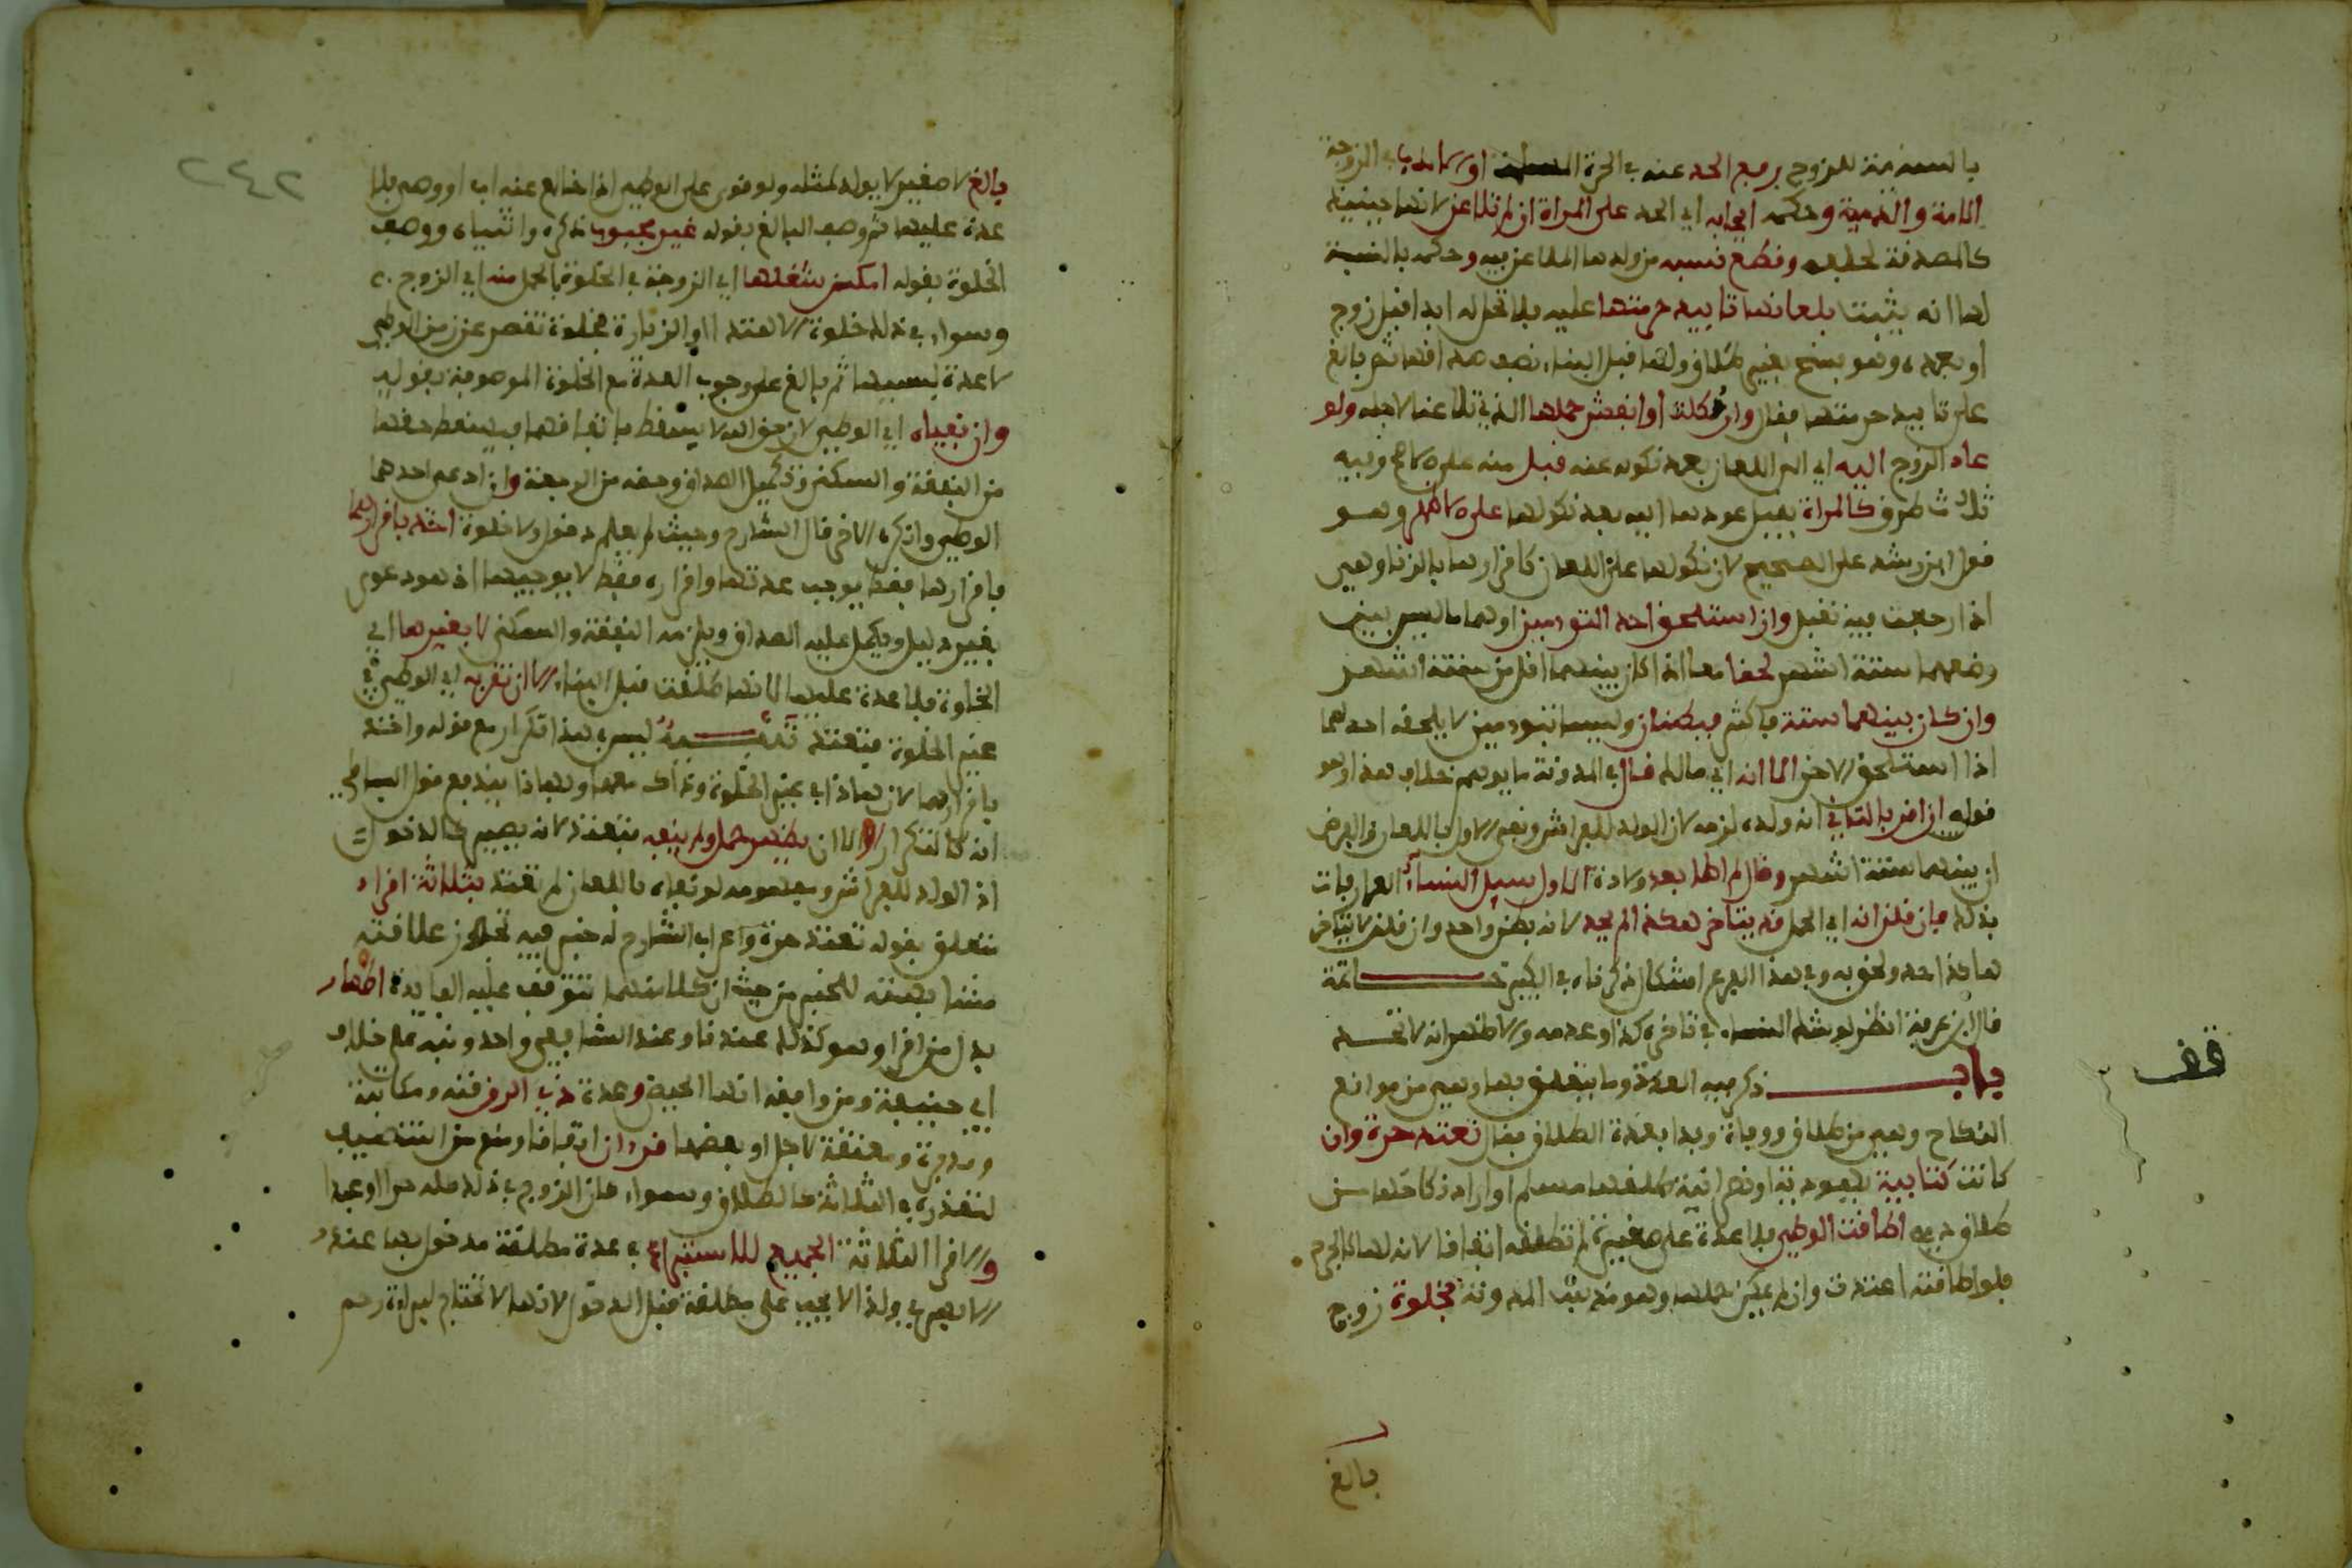 بالنسبة للزوج برفع الحد عنه في الحرة المسلمة او الادب في الزوجة
الامة والذمية وحكمه ايجابه اي الحد على المراة ان لم تلاعن لانها حينئذ
كالمصدقة لحلفه وقطع نسبه من ولدها الملاعن فيه وحكمه بالنسبة
لها انه يثبت بلعانها تابيد حرمتها عليه فلا تحل له ابدا قبل زوج
او بعده وهو فسخ بغير طلاق ولها قبل البناء نصف صداقها ثم بالغ
على تابيد حرمتها فقال وان نكلت او انفش حملها الذي تلاعنا لاجله ولو
عاد الزوج اليه اي الى اللعان بعد نكوله عنه قبل منه على وفيه
ثلاث طرق كالمراة يقبل عودها اليه بعد نكولها على الاظهر وهو
قول ابن رشد على الصحيح لان نكولها على اللعان كاقرارها بالزنا وهي
اذا رجعت فيه تقبل وان استلحق احد التوءمين اوهما ما ليس بين
وضعهما ستة اشهر لحقا معا اذا كان بينهما اقل من ستة اشهر
وان كان بينهما ستة فاكثر فبطنان وليسا بتوءمين لا يلحقه احدهما
اذا استلحق الاخر الا انه اي مالك قال في المدونة ما يوهم خلاف هذا وهو
قوله ان اقر بالثاني انه ولده لزمه لان الولد للفراش ونفي الاول باللعان والفرض
ان بينهما ستة اشهر وقال لم اطا بعد ولادة الاول سيل النساء العارفات
بذلك فان قلن انه اي الحمل قد يتاخر هكذا لم يحد لانه بطن واحد وان قلن لا يتاخر
هاكذا حد ولحق به وفي هذا الفرع اشكال ذكرناه في الكبير خـــاتمة
قال ابن عرفة انظر لو شك النساء في تاخره كذا وعدمه والاظهر انه لا تحد
باب ذكر فيه العدة وما يتعلق بها وهي من موانع
النكاح وهي من طلاق ووفاة وبدا بعدة الطلاق فقال تعتد حرة وان
كانت كتابية يهودية او نصرانية طلقها مسلم او اراد نكاحها من
طلاق ذمي اطاقت الوطئ فلا عدة على صغيرة لم تطقه اتفاقا لانه لها كالجرح
فلو اطاقته اعتدت وان لم يمكن حملها وهو مذهب المدونة بخلوة زوج
بالغ
قف
٢٤٢
بالغ لا صغير لا يولد لمثله ولو قوي على الوطئ اذا خالع عنه اب او وصي فلا
عدة عليها ثم وصف البالغ بقوله غير مجبوب ذكره وانثياه ووصف
الخلوة بقوله امكن شغلها اي الزوجة في الخلوة بالحمل منه اي الزوج
وسواء في ذلك خلوة الاهتداء او الزيارة فخلوة تقصر عن زمن الوطئ
لا عدة بسببها ثم بالغ على وجوب العدة مع الخلوة الموصوفة بقوله
وان نفياه اي الوطئ لان حق الله لا يسقط باتفاقهما فيسقط حقها
من النفقة والسكنى وتكميل الصداق وحقه من الرجعة وان ادعى احدهما
الوطئ وانكره الاخر قال الشارح وحيث لم يعلم دخول ولا خلوة اخذ باقرارهما
فاقرارها فقط يوجب عدتها واقراره فقط لا يوجبها اذ هو دعوى
بغير دليل ويكمل عليه الصداق ويلزمه النفقة والسكنى لا بغيرها اي
الخلوة فلا عدة عليها لانها طلقت قبل البناء الا ان تقر به اي الوطئ في
غير الخلوة فتعتد تنبيه ليس هذا تكرار مع قوله واخذ
باقرارهما لان هاذا في غير الخلوة وذاك معها وبهاذا يندفع قول البساطي
انه كالتكرار والا ان يظهر حمل ولم ينفه فتعتد لانه يصير كالدخول
اذ الولد للفراش ومفهومه لو نفاه باللعان لم تعتد بثلاثة اقراء
متعلق بقوله تعتد حرة واعراب الشارح له خبر فيه تجوز علاقته
مشابهته للخبر من حيث ان كلا منهما تتوقف عليه الفايدة اطهار
بدل من اقراء وهو كذلك عندنا وعند الشافعي واحد ونبه على خلاف
ابي حنيفة ومن وافقه انها الحيض وعدة ذي الرق قنة ومكاتبة
ومدبرة ومعتقة لاجل او بعضها قرءان اتفاقا ومنع من التنصيف
لتعذره في الثلاثة كالطلاق وسواء كان الزوج في ذلك كله حرا او عبدا
والاقراء الثلاثة الجميع للاستبراء في عدة مطلقة مدخول بها عند
الابهري ولذا لا يجب على مطلقة قبل الدخول لانها لا تحتاج لبراءة رحم